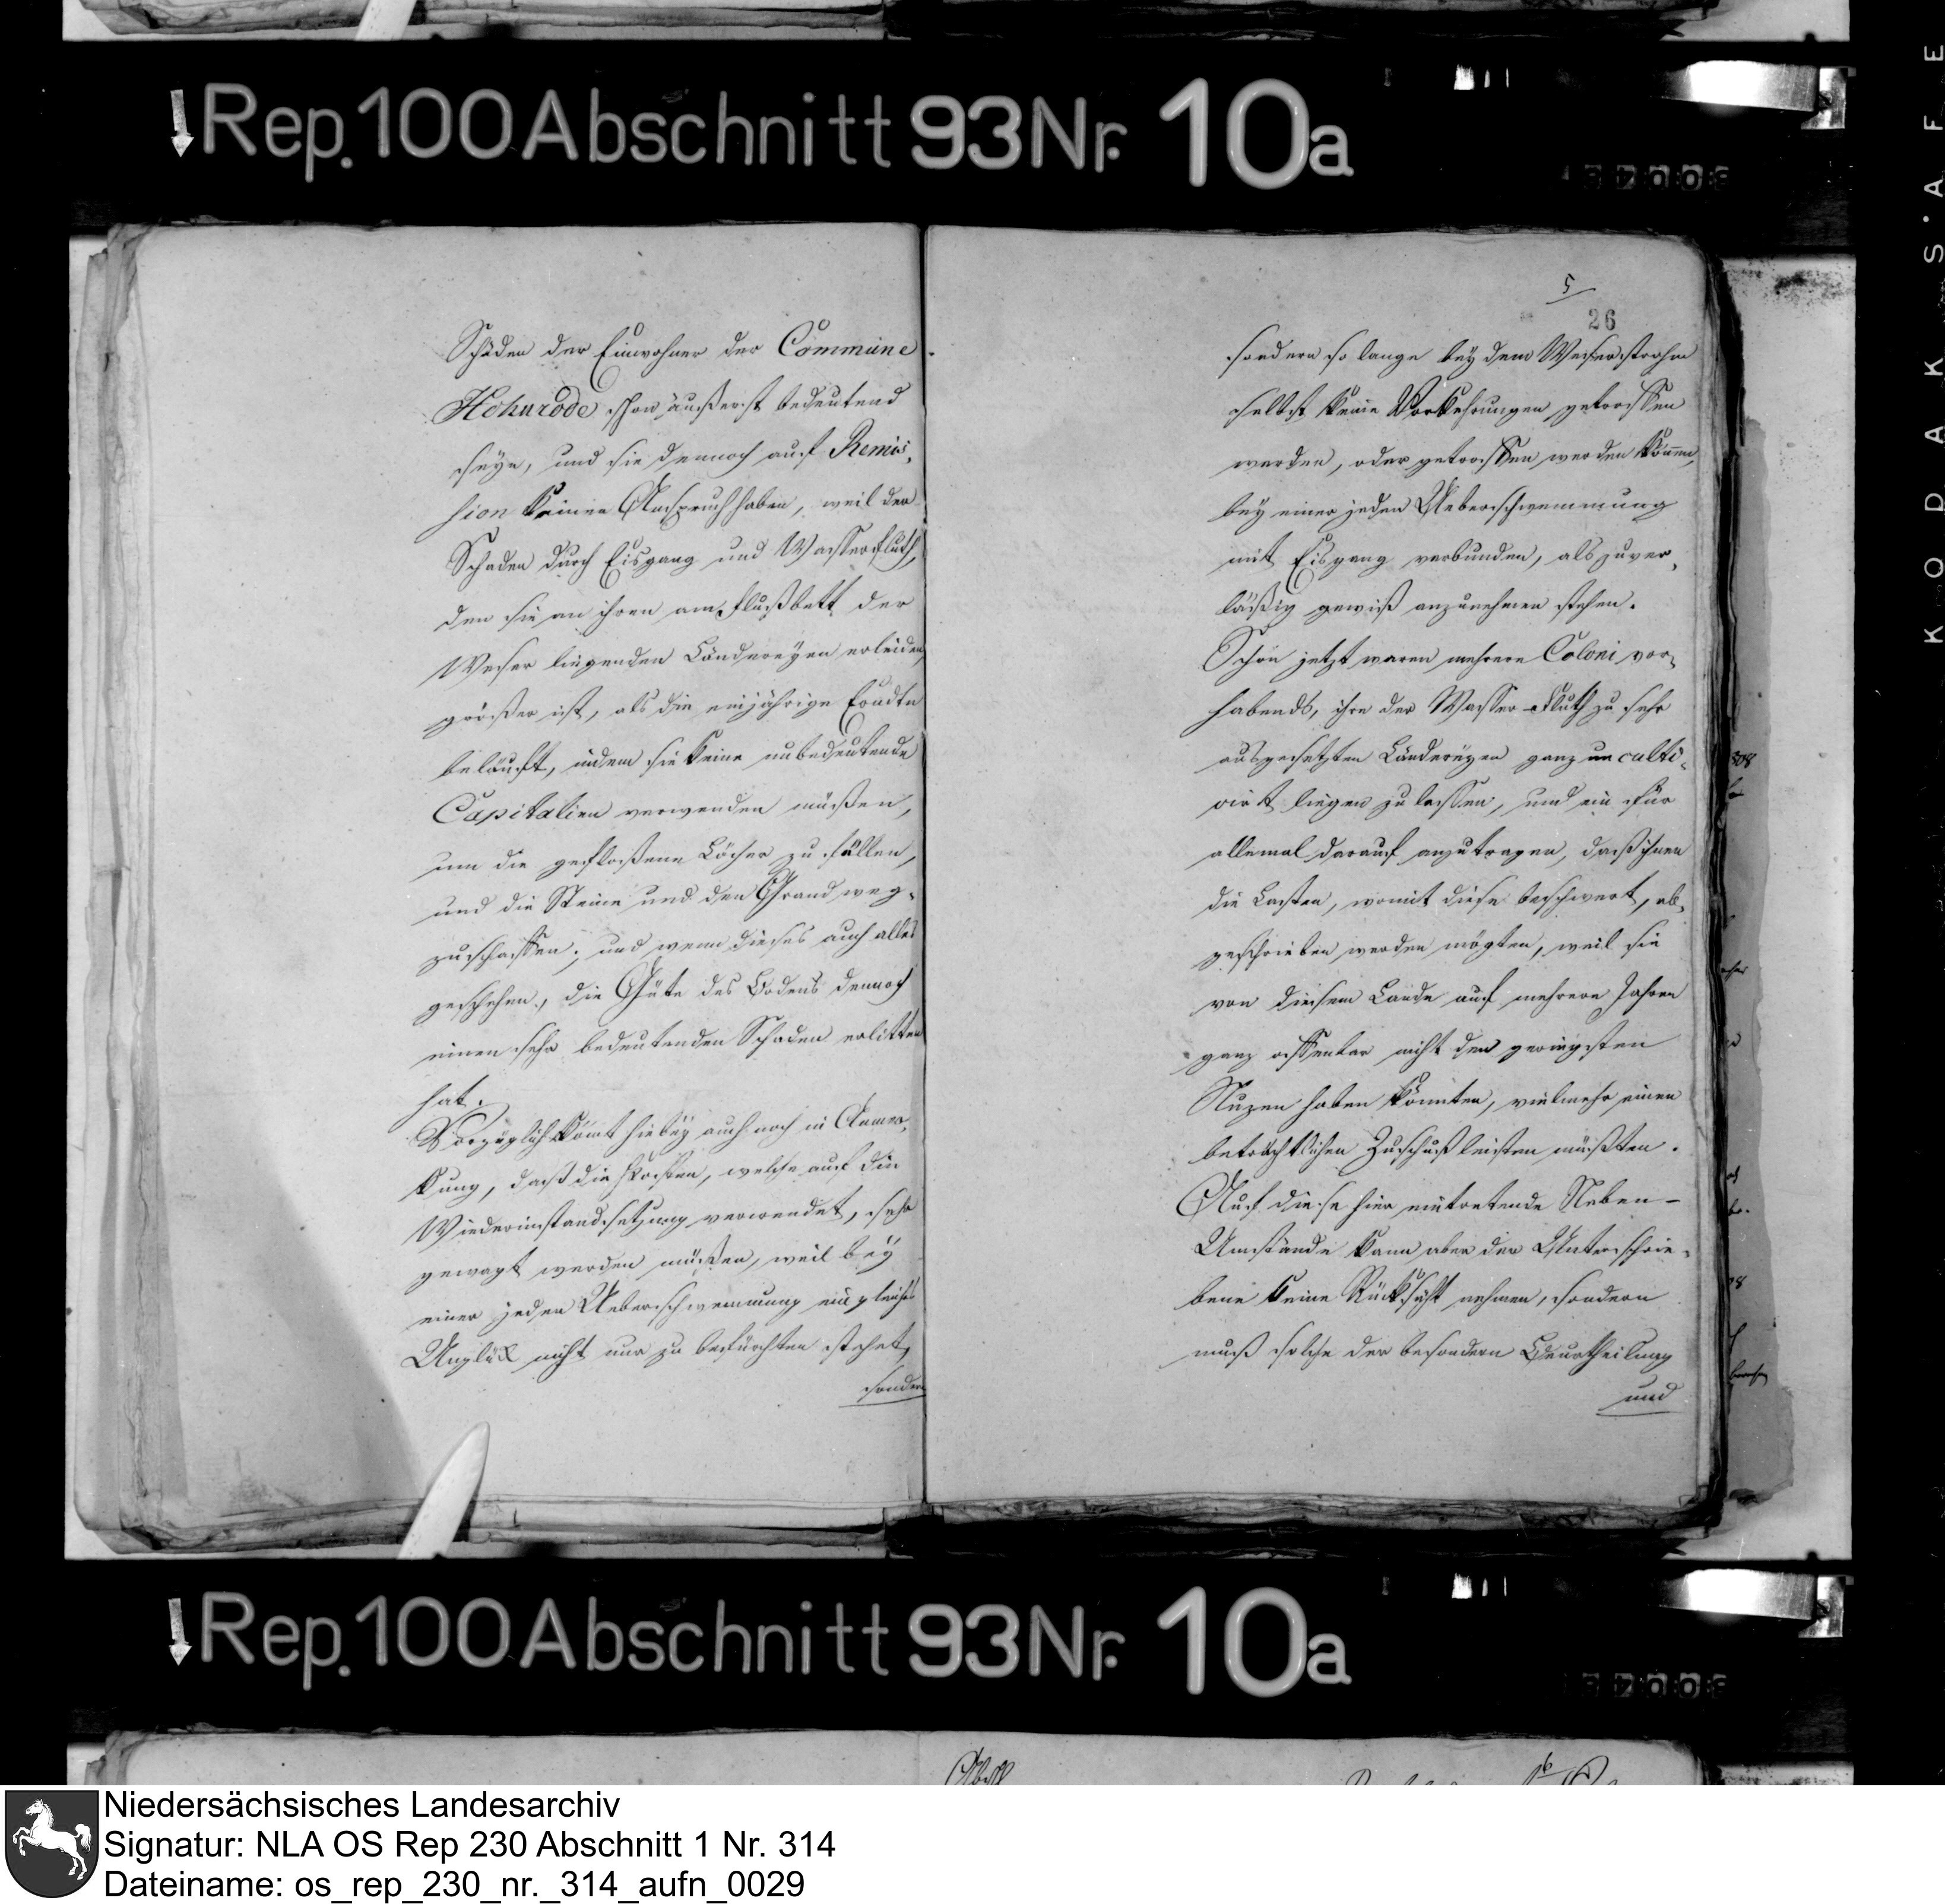 Rep. 100 Abschnitt 93 Nr. 10a
Schäden der Einwohner der Commüne
Hohnrode schon äußerst bedeutend
seyn, und sie dennoch auf Remis-
sion keinen Anspruch haben, weil der
Schaden durch Eisgang und Wasserfluth,
den sie an ihren am Flußbett der
Weser liegenden Ländereyen erleiden,
größer ist, als die einjährige Erndte
beläuft, indem sie keine unbedeutende
Capitalien verwenden müßen,
um die gefloßene Löcher zu füllen,
und die Steine und den Grand weg-
zuschaffen; und wenn dieses auch alles
geschehen, die Güte des Bodens dennoch
einen sehr bedeutenden Schaden erlitten
hat.
Vorzüglich kömt hiebey auch noch in Anmer-
kung, daß die Kosten, welche auf die
Wiederinstandsetzung verwendet, sehr
gewagt werden müßen, weil bey
einer jeden Ueberschwemmung ein gleiches
Unglück nicht nur zu befürchten stehet,
sondern
5
26
sondern so lange bey dem Weserstrohm
selbst keine Vorkehrungen getroffen
werden, oder getroffen werden können,
bey einer jeden Ueberschwemmung
mit Eisgang verbunden, als zuver-
läßig gewiß anzunehmen stehen.
Schon jetzt waren mehrere Coloni vor-
habends, ihre der Wasser-Fluth zu sehr
ausgesetzten Ländereyen ganz unculti-
virt liegen zu lassen, und ein für
allemal darauf anzutragen, daß ihnen
die Lasten, womit diese beschwert, ab-
geschrieben werden mögten, weil sie
von diesem Lande auf mehrere Jahren
ganz offenbar nicht den geringsten
Nuzen haben könnten, vielmehr einen
beträchtlichen Zuschuß leisten müßten.
Auf diese hier eintretende Neben-
Umstände kann aber der Unterschrie-
bene keine Rücksicht nehmen, sondern
muß solche der besondern Beurtheilung
und
Rep. 100 Abschnitt 93 Nr. 10a
KODAK S.AFE
Niedersächsisches Landesarchiv
Signatur: NLA OS Rep 230 Abschnitt 1 Nr. 314
Dateiname: os_rep_230_nr._314_aufn_0029